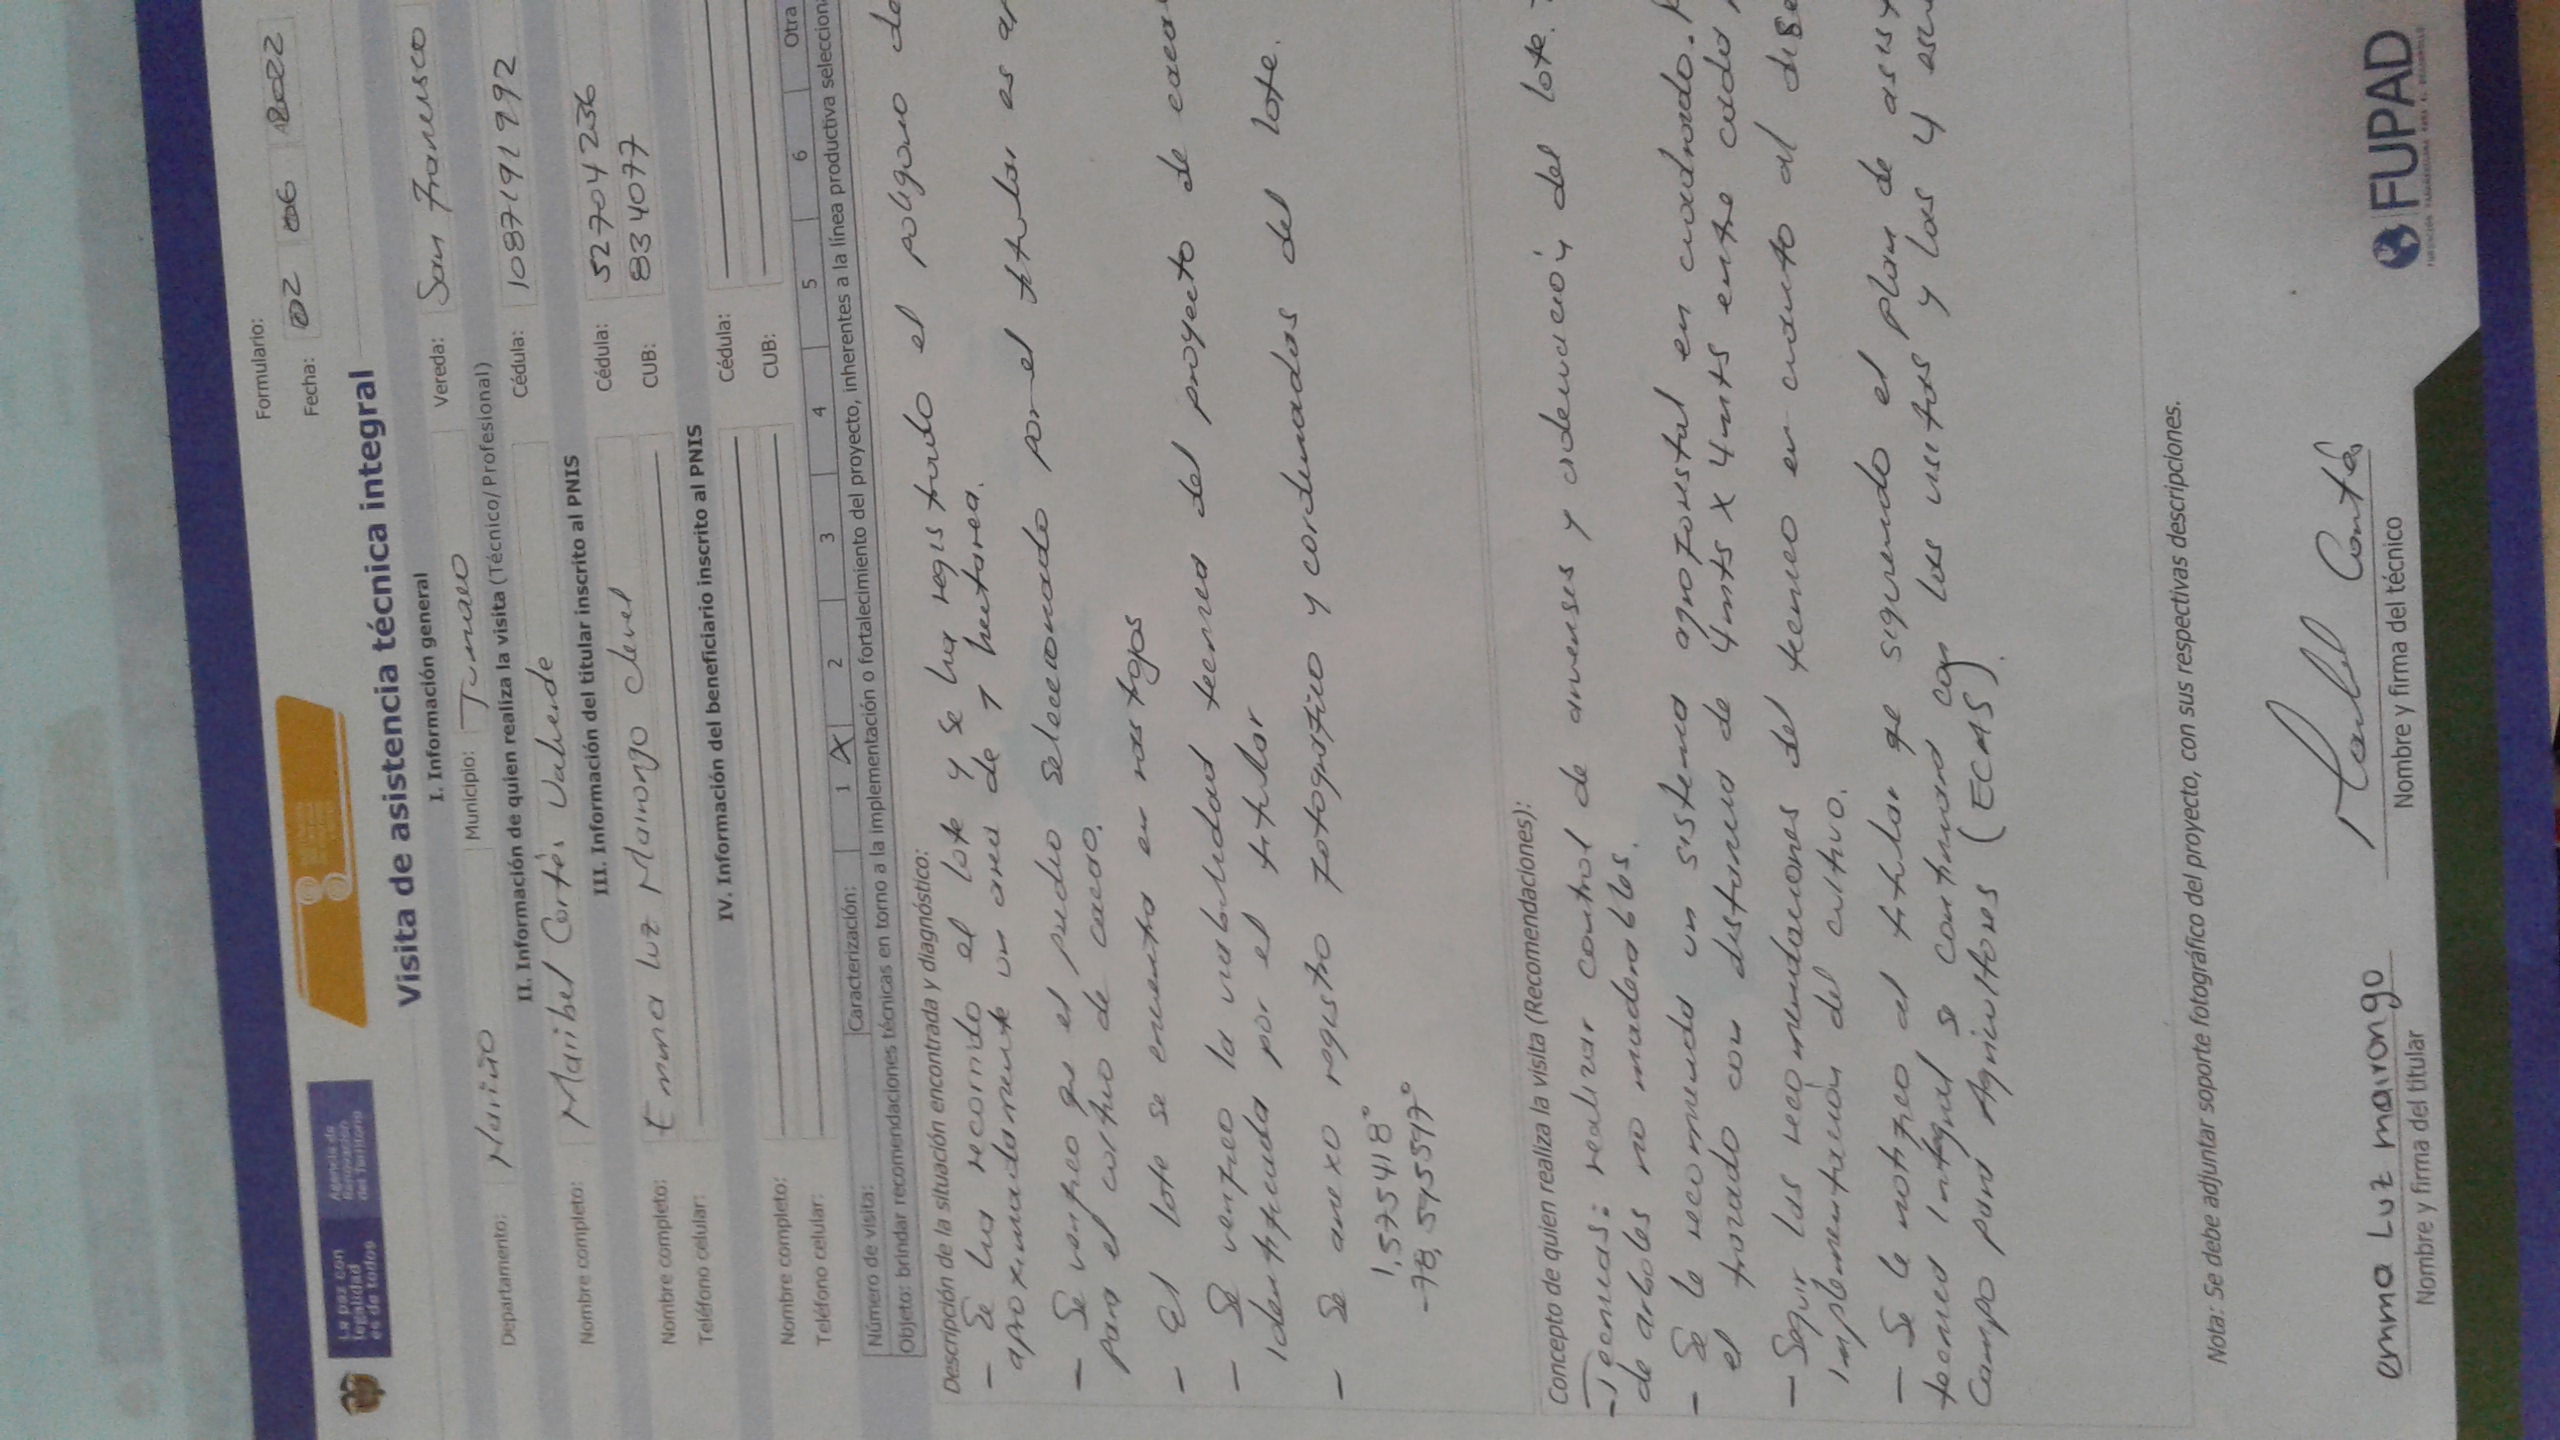 La paz con
legalidad
es de todos
Agencia de
Renovación
del Territorio
Formulario:
Fecha: 02 06 2022
Visita de asistencia técnica integral
I. Información general
Departamento: Nariño Municipio: Tumaco Vereda: San Francisco
II. Información de quien realiza la visita (Técnico/Profesional)
Nombre completo: Maribel Cortés Valverde Cédula: 1087191992
III. Información del titular inscrito al PNIS
Nombre completo: Emma luz Mairongo Clevel Cédula: 52704236
Teléfono celular: CUB: 834077
IV. Información del beneficiario inscrito al PNIS
Nombre completo: Cédula:
Teléfono celular: CUB:
Número de visita: Caracterización: 1 X 2 3 4 5 6 Otra
Objeto: brindar recomendaciones técnicas en torno a la implementación o fortalecimiento del proyecto, inherentes a la línea productiva seleccion
Descripción de la situación encontrada y diagnóstico:
- Se ha recorrido el lote y se ha registrado el poligono de
aproximadamente un area de 1 hectarea.
- Se verifico que el predio seleccionado por el titular es
para el cultivo de cacao.
- El lote se encuentra en rastrojos
- Se verifico la viabilidad tecnica del proyecto de cacao
identificada por el titular
- Se anexo registro fotografico y cordenadas del lote.
1,575418°
-78,5755972°
Concepto de quien realiza la visita (Recomendaciones):
- Tecnicas: realizar control de arvenses y adecuación del lote.
de arboles no maderables.
- Se le recomienda un sistema agroforestal en cuadrado.
el trazado con distancia de 4mts x 4mts entre cada
- Seguir las recomendaciones del tecnico en cuanto al
implementación del cultivo.
- Se le notifico al titular qe siguiendo el plan de
tecnica integral se continuara con las visitas y las 4
Campo para Agricultores (ECAS).
Nota: Se debe adjuntar soporte fotográfico del proyecto, con sus respectivas descripciones.
emma Luz mairongo
Nombre y firma del titular
Maribel Cortés
Nombre y firma del técnico
FUPAD
FUNDACIÓN PANAMERICANA PARA EL DESARROLLO